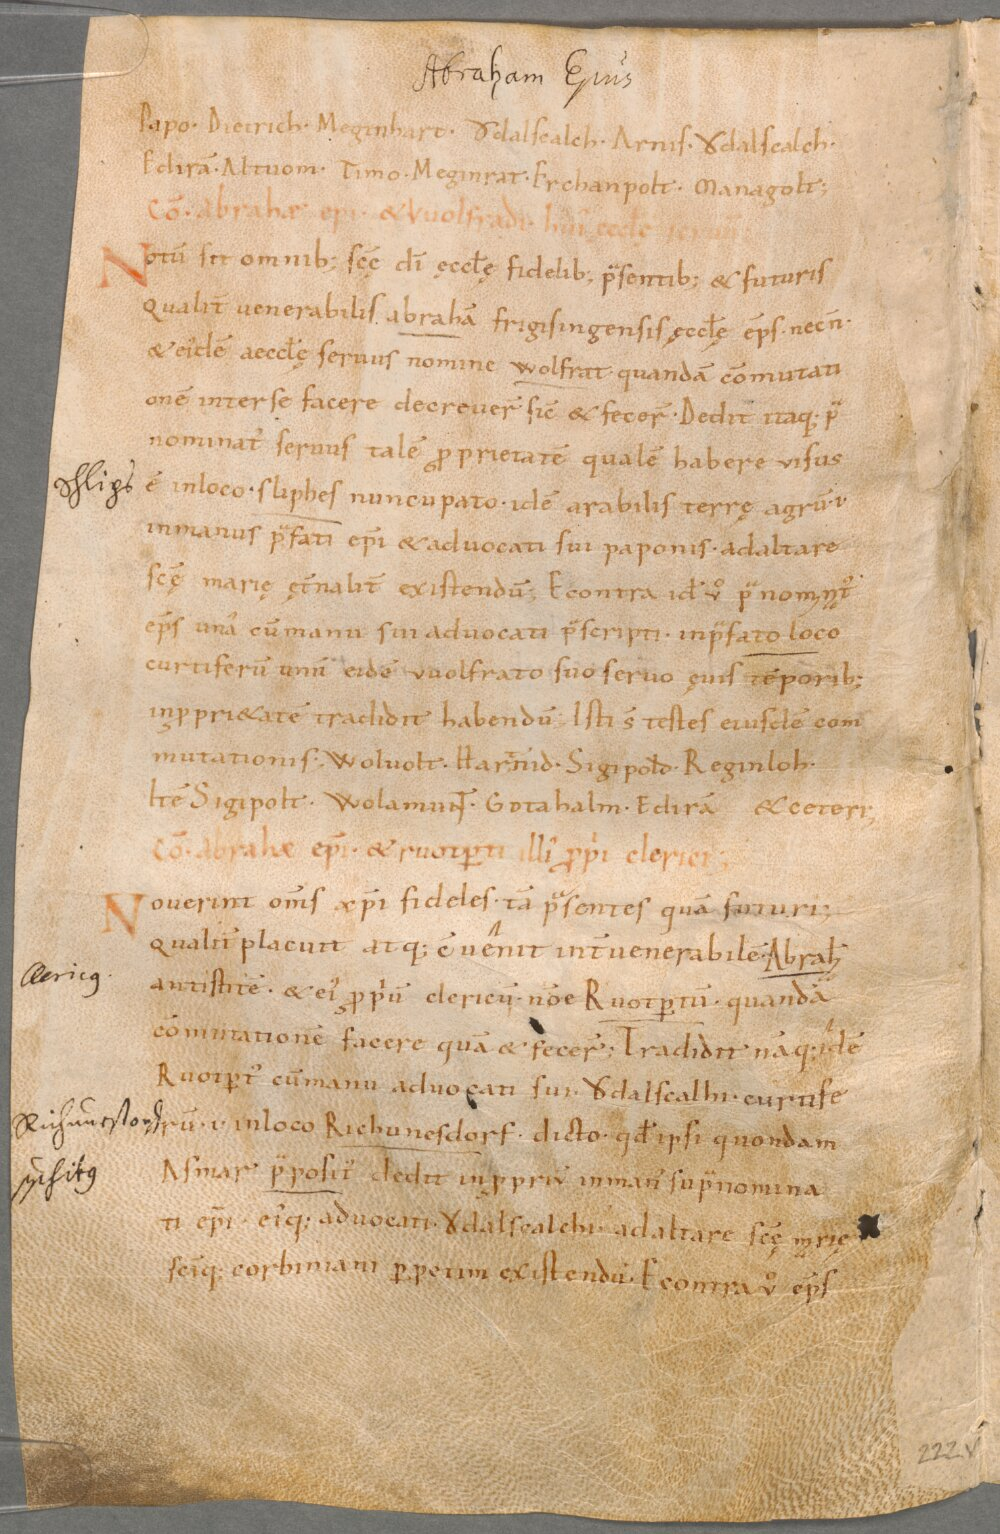 Abraham Ep̄us
Papo· Dietrich· Meginhart· Ꝩdalscalch· Arnis· Ꝩdalscalch·
Edirā· Altuom· Timo· Meginrat· Erchanpolt· Managolt;
Cō· Abrahę ep̄i· & vuolfradi· huī ęccłę serui;
Notū sit omnib; scę̄ dī ęccłę fidelib; p̄sentib; & futuris
qualit̄ venerabilis abrahā frigisingensis ęccłę ep̄s· necn̄·
& eiꝰdē aeccłę seruus nomine wolfrat· quandā cōmutati
onē inter se facere decreuer̄ sic̄ & fecer̄· Dedit itaq; p̄
nominat᷒ seruus talē ꝓprietatē qualē habere visus
Shlips
ē inloco· sliphes nuncupato· idē arabilis terrę agrū·i·
inmanus p̄fati ep̄i & aduocati sui paponis· adaltare
scę̄ marię ęt̄nalit̄ existendū; Econtra id v̊ p̄nominat᷒
ep̄s unā cūmanu sui aduocati p̄scripti· inp̄fato loco
curtiferū unū eidē vuolfrato suo seruo ęuis tēporib;
inꝓpri&atē tradidit habendū; Isti s̄ testes eiusdē com
mutationis· Woluolt· Hartnid· Sigipold· Reginloh·
Itē Sigipolt· Wolamunt· Gotahalm· Edirā & ceteri;
Cō· Abrahę ep̄i· & ruotꝑti illi᷒ ꝓp̄i clerici;
Nouerint om̄s xp̄i fideles· tā p̄sentes quā futuri;
qualit̄ placuit atq; cuēnit int̄ venerabilē Abrah̄
Clericꝰ·
antistitē· & ei᷒ ꝓp̄ū clericū· nōe Ruotꝑtū· quandā
cōmutationē facere quā & fecer̄; Tradidit nāq; idē
Ruotꝑt᷒ cūmanu aduocati sui· Ꝩdalscalhi· curtife
rū·i· inloco Richunesdorf· dicto· qđ ipsi quondam
Asmar p̄posit᷒ dedit inꝓpriū inman᷒ sup̄nomina
ti ep̄i· ei᷒q; aduocati· Ꝩdalscalchi· adaltare scę̄ mrię
scīq; corbiniani ꝑpetim existendū· Econtra v̊ ep̄s
222v